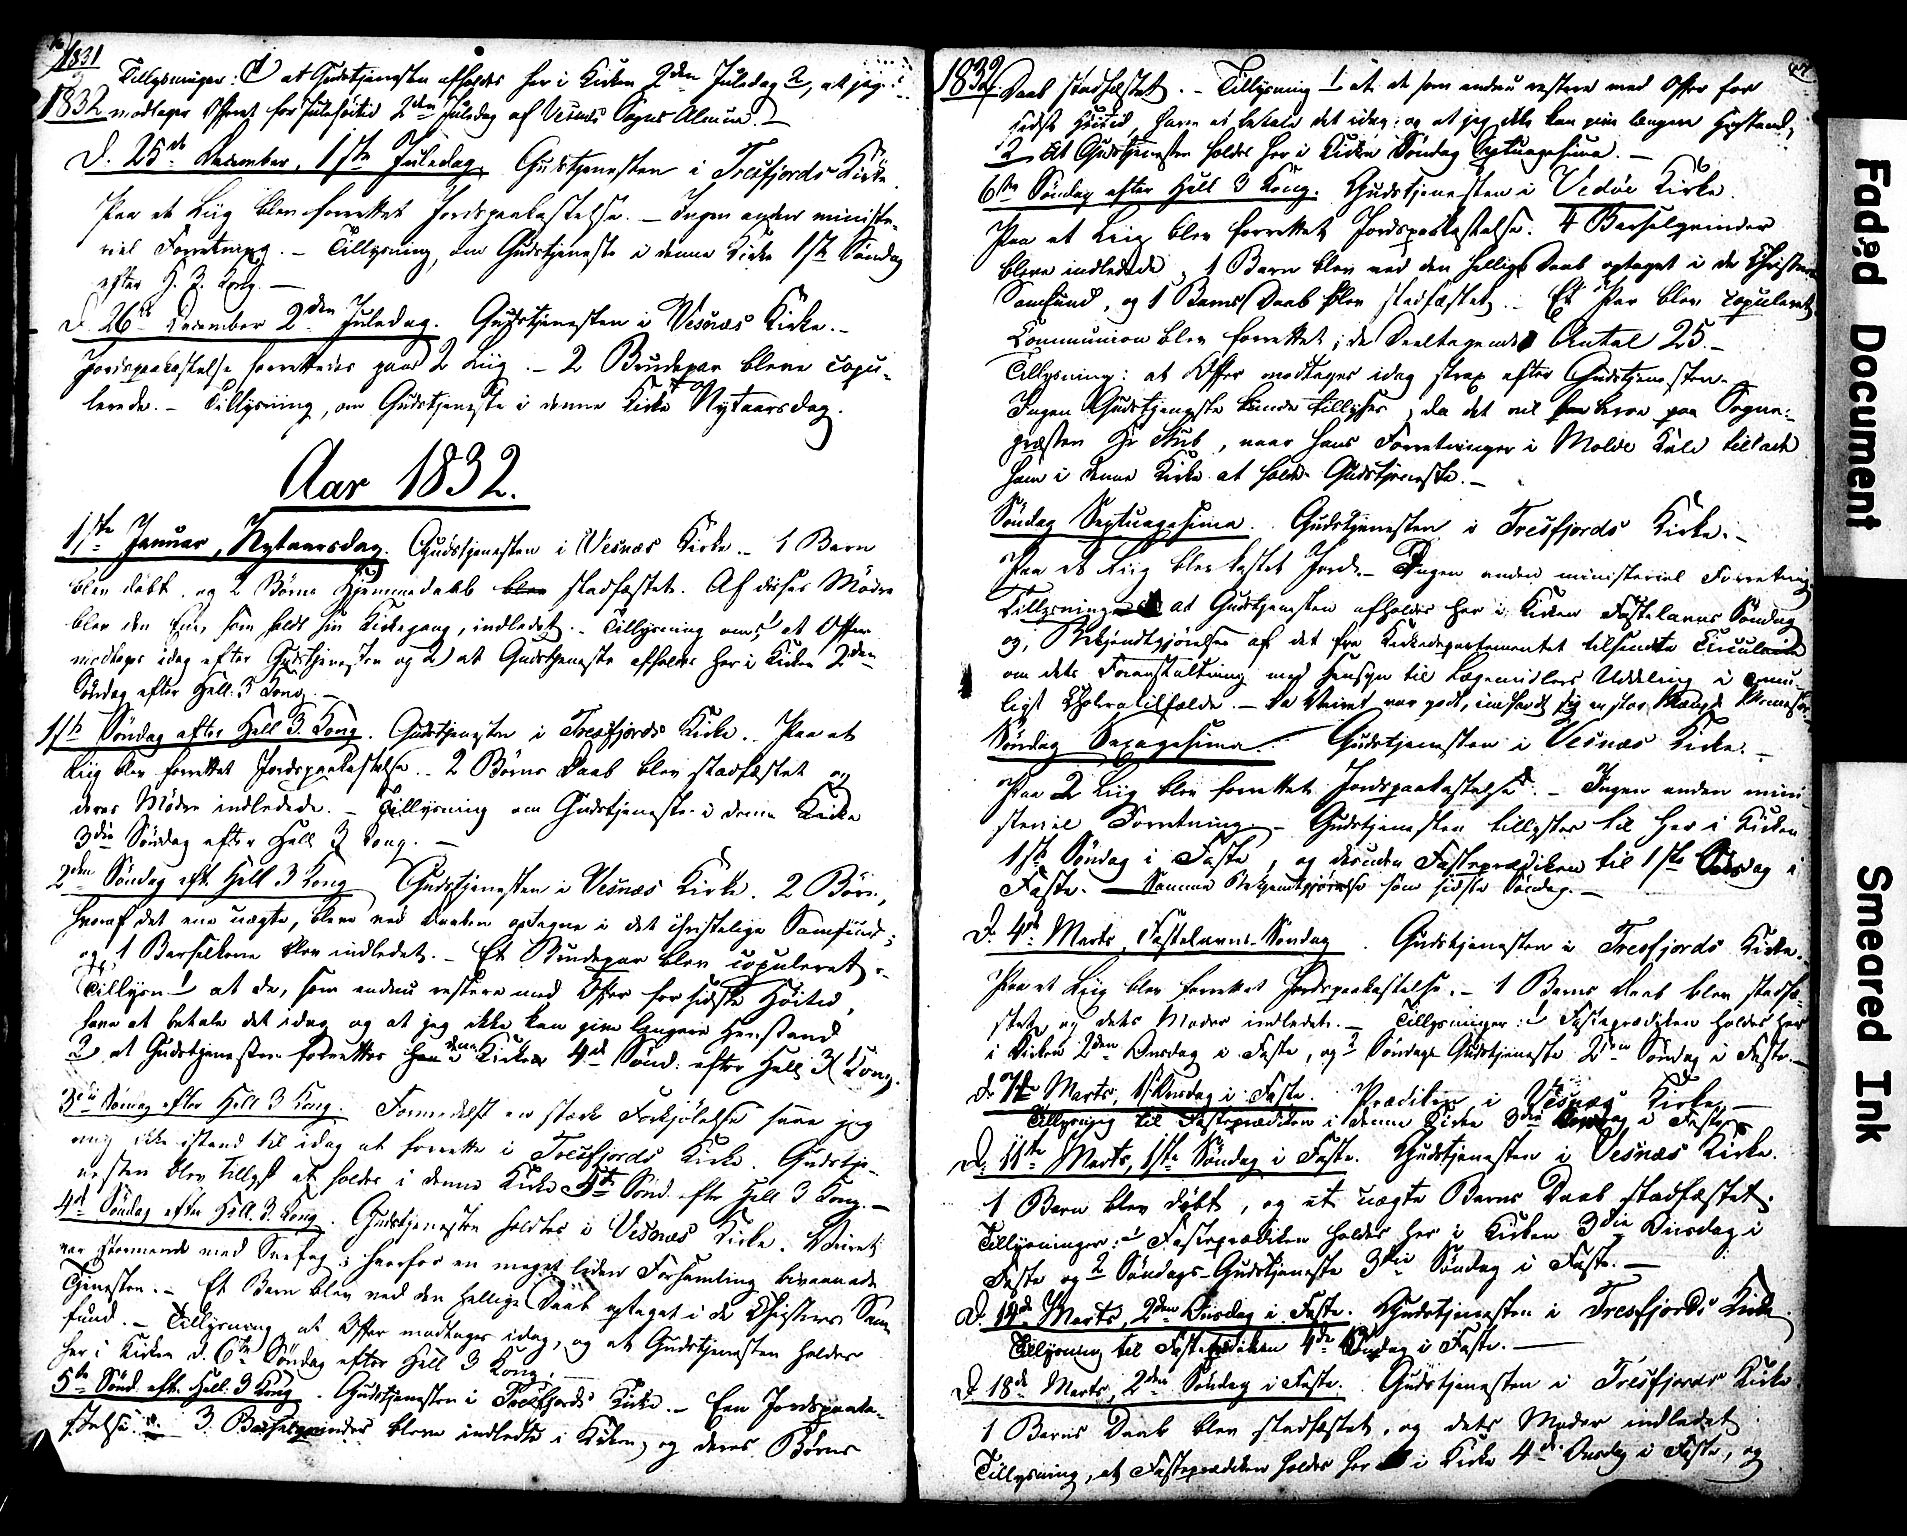 1831
Tillysninger: 1) at Gudstjenesten afholdes her i Kirken 2den Juledag 2, at jeg
1832 modtager Offeret for Julehøitid 2den Juledag af Vesnes Sogns Almue. –
D. 25de December, 1ste Juledag. Gudstjenesten i Tresfjords Kirke.
Paa et Liig blev forrettet Jordspaakastelse. – Ingen anden ministe-
riel Forretning. – Tillysning, om Gudstjeneste i denne Kirke 1ste Søndag
efter H. 3 Kong. –
D. 26de December 2den Juledag. Gudstjenesten i Vesnæs Kirke. –
Jordspaakastelse forrettedes paa 2 Liig. – 2 Brudepar bleve copu-
lerede. – Tillysning, om Gudstjeneste i denne Kirke Nytaarsdag.
Aar 1832.
1ste Januar, Nytaarsdag. Gudstjenesten i Vesnæs Kirke. – 1 Barn
blev døbt, og 2 Børns Hjemmedaab blev stadfæstet. Af disses Mødre
blev den Ene, som holdt sin Kirkegang, indledet. – Tillysning om, 1 at Offer
modtages idag efter Gudstjenesten og 2) at Gudstjeneste afholdes her i Kirken 2den
Søndag efter Hell. 3 Kong. –
1ste Søndag efter Hell 3. Kong. Gudstjenesten i Tresfjords Kirke. – Paa et
Liig blev forrettet Jordspaakastelse. – 2 Børns Daab blev stadfæstet og
deres Mødre indledede. – Tillysning om Gudstjeneste i denne Kirke
3die Søndag efter Hell 3 Kong. –
2den Søndag eft. Hell 3 Kong Gudstjenesten i Vesnæs Kirke. 2 Børn,
hvoraf det ene uægte, bleve ved Daaben optagne i det christelige Samfund;
og 1 Barselkone blev indledet. – Et Brudepar blev copuleret. –
Tillysn. 1 at de, som endnu restere med Offer for sidste Høitid,
have at betale det idag og at jeg ikke kan give længere Henstand
2 at Gudstjenesten forrettes her i denne Kirke 4de Sønd. efter Hell 3 Kong.
3die Søndag efter Hell 3 Kong. Formedelst en stærk Forkjølelse saae jeg
mig ikke istand til idag at forrette i Tresfjords Kirke. Gudstje-
nesten blev tillyst at holdes i denne Kirke 5te Sønd. efter Hell 3 Kong. –
4de Søndag efter Hell. 3. Kong. Gudstjenesten holdtes i Vesnæs Kirke. Veiret
var stormende med Snefog; hvorfor en meget liden Forsamling bivaanede
Tjenesten. – Et Barn blev ved den hellige Daab optaget i de Christnes Sam-
fund. – Tillysning at Offer modtages idag, og at Gudstjenesten holdes
her i Kirken d. 6te Søndag efter Hell 3 Kong. –
5te Sønd. eft. Hell. 3 Kong. Gudstjenesten i Tresfjords Kirke. – Een Jordspaaka-
stelse. – 3 Barselqvinder bleve indledte i Kirken, og deres Børns
1832 Daab stadfæstet. – Tillysning 1 at de som endnu restere med Offer for
sidste Høitid, have at betale det idag: og at jeg ikke kan give længere Henstand,
2 At Gudstjenesten holdes her i Kirken Søndag Septuagesima. –
6te Søndag efter Hell 3 Kong. Gudstjenesten i Vedøe Kirke.
Paa et Liig blev forrettet Jordspaakastelse. 4 Barselqvinder
bleve indledede, 1 Barn blev ved den hellige Daab optaget i de Christnes
Samfund, og 1 Barns Daab blev stadfæstet. – Et Par blev copuleret
Communion blev forrettet; de Deeltagendes Antal 25. –
Tillysning: at Offer modtages idag strax efter Gudstjenesten. –
Ingen Gudstjeneste kunde tillyses, da det vil beroe paa Sogne-
præsten Hr Stub, naar hans Forretninger i Molde Kald tillade
ham i denne Kirke at holde Gudstjeneste. –
Søndag Septuagesima. Gudstjenesten i Tresfjords Kirke. –
Paa et Liig blev kastet Jord. – Ingen anden ministeriel Forretning.
Tillysning at Gudstjenesten afholdes her i Kirken Fastelavns Søndag
og, Bekjendtgjørelse af det fra Kirkedepartementet tilsendte Circulaire
om dets Foranstaltning med Hensyn til Lægemidlers Uddeling i
ligt Choleratilfælde. – Da Veiret var godt, indfandt sig en stor Mængde Mennesker
Søndag Sexagesima. Gudstjenesten i Vesnæs Kirke. –
Paa 2 Liig blev forrettet Jordspaakastelse. – Ingen anden mini-
steriel Forretning. – Gudstjenesten tillystes til her i Kirken
1ste Søndag i Faste, og desuden Fasteprædiken til 1ste Onsdag i
Faste. – Samme Bekjendtgjørelse som sidste Søndag. –
D. 4de Marts, Fastelavns-Søndag. Gudstjenesten i Tresfjords Kirke. –
Paa et Liig blev forrettet Jordspaakastelse. – 1 Barns Daab blev stadfæ-
stet og dets Moder indledet. – Tillysninger: 1 Fasteprædiken holdes her
i Kirken 2den Onsdag i Faste, og 2 Søndags Gudstjeneste 2den Søndag i Faste. –
D. 7de Marts, 1ste Onsdag i Faste. Prædiken i Vesnæs Kirke. –
Tillysning til Fasteprædiken i denne Kirke 3die Onsdag i Faste
D. 11te Marts, 1ste Søndag i Faste. Gudstjenesten i Vesnæs Kirke.
1 Barn blev døbt, og et uægte Barns Daab stadfæstet.
Tillysninger: 1 Fasteprædiken holdes her i Kirken 3die Onsdag i
Faste og 2 Søndags-Gudstjeneste 3die Søndag i Faste. –
D. 14de Marts, 2den Onsdag i Faste. Gudstjenesten i Tresfjords Kirke.
Tillysning til Fasteprædiken 4de Onsdag i Faste. –
D. 18de Marts, 2den Søndag i Faste. Gudstjenesten i Tresfjords Kirke
1 Barns Daab blev stadfæstet, og dets Moder indledet
Tillysning, at Fasteprædiken holdes her i Kirke 4de Onsdag i Faste, og
Faded Document
Smeared Ink